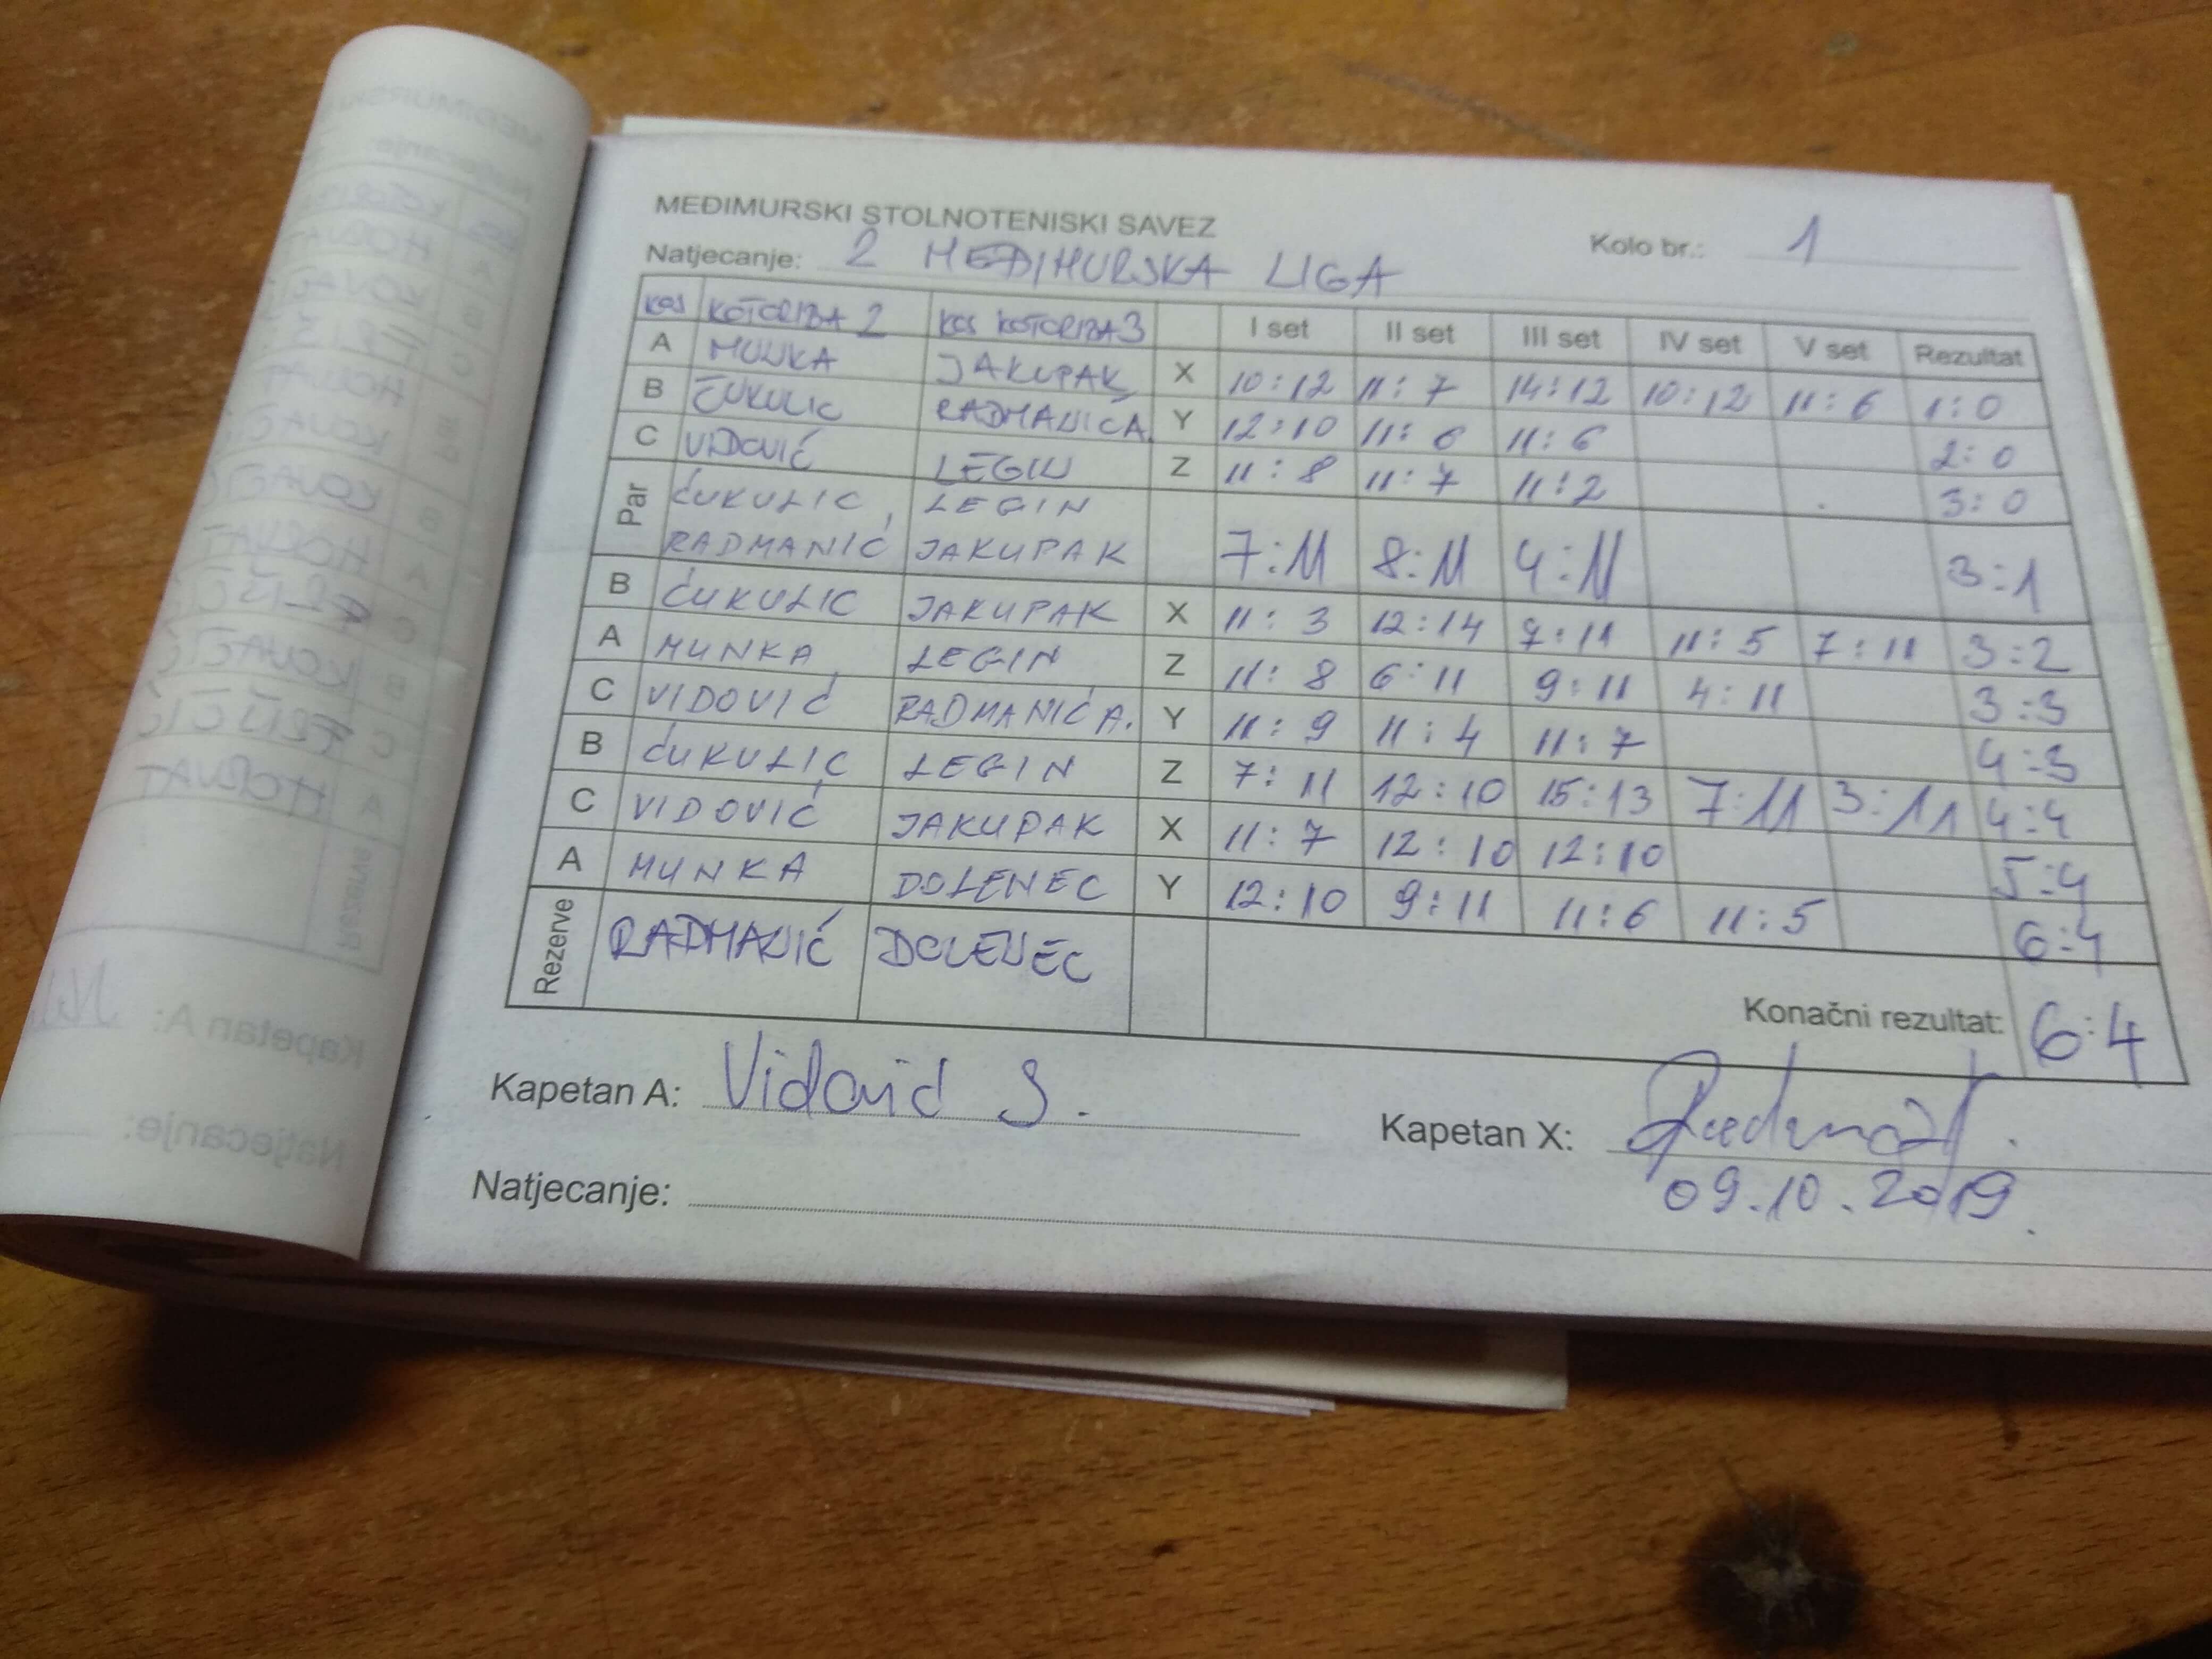 MEĐIMURSKI STOLNOTENISKI SAVEZ
Natjecanje: 2 MEĐIMURSKA LIGA Kolo br.: 1
KOS KOTORIBA 2 KOS KOTORIBA 3 I set II set III set IV set V set Rezultat
A MUNKA JAKUPAK X 10:12 11:7 14:12 10:12 11:6 1:0
B ČUKULIC RADMANIĆ A. Y 12:10 11:6 11:6 2:0
C VIDOVIĆ LEGIN Z 11:8 11:7 11:2 3:0
Par ĆUKULIC, LEGIN
RADMANIĆ JAKUPAK 7:11 8:11 4:11 3:1
B ĆUKULIC JAKUPAK X 11:3 12:14 9:11 11:5 7:11 3:2
A MUNKA LEGIN Z 11:8 6:11 9:11 4:11 3:3
C VIDOVIĆ RADMANIĆ A. Y 11:9 11:4 11:7 4:3
B ĆUKULIC LEGIN Z 7:11 12:10 15:13 7:11 3:11 4:4
C VIDOVIĆ JAKUPAK X 11:7 12:10 12:10 5:4
A MUNKA DOLENEC Y 12:10 9:11 11:6 11:5 6:4
Rezerve RADMANIĆ DOLENEC
Konačni rezultat: 6:4
Kapetan A: Vidović S. Kapetan X:
09.10.2019.
Natjecanje: